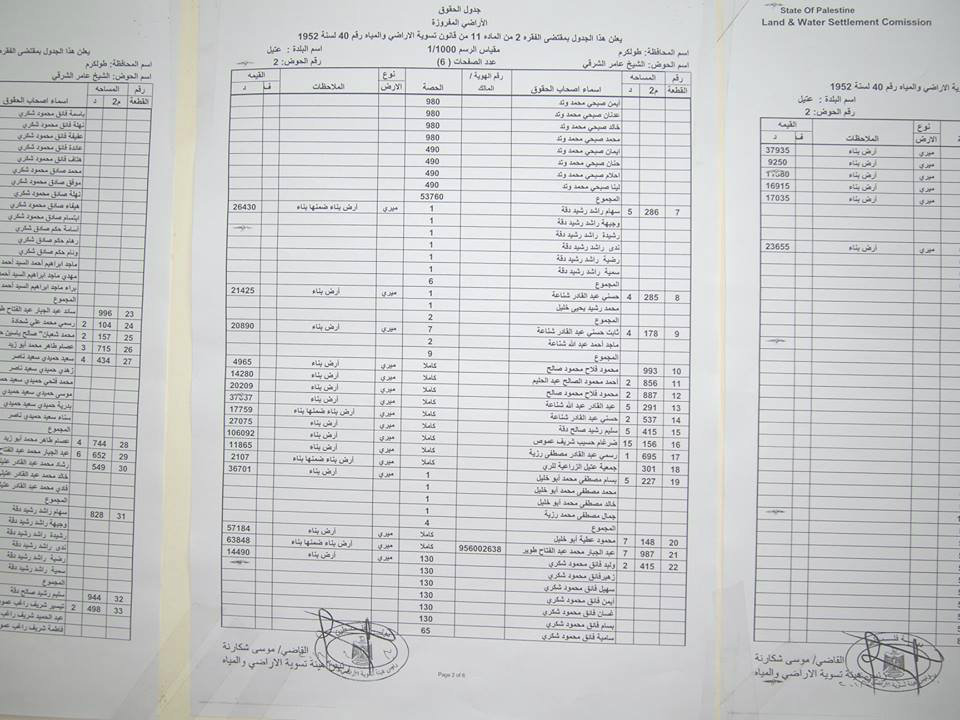 State Of Palestine
Land & Water Settlement Comission
رية الاراضي والمياه رقم 40 لسنة 1952
اسم البلدة : عتيل
رقم الحوض: 2
نوع الارض الملاحظات القيمه
ف د
ميري أرض بناء 37935
ميري أرض بناء 9250
ميري أرض بناء
ميري أرض بناء 16915
ميري أرض بناء 17035
ميري أرض بناء 23655
القاضي/ موسى شكارنة
رئيس هيئة تسوية الاراضي والمياه
جدول الحقوق
الأراضي المفروزة
يعلن هذا الجدول بمقتضى الفقره 2 من الماده 11 من قانون تسوية الاراضي والمياه رقم 40 لسنة 1952
اسم المحافظة: طولكرم مقياس الرسم 1/1000 اسم البلدة : عتيل
اسم الحوض: الشيخ عامر الشرقي عدد الصفحات (6) رقم الحوض: 2
رقم القطعة المساحه اسماء اصحاب الحقوق رقم الهوية/ المالك الحصة نوع الارض الملاحظات القيمه
م2 د ف د
أيمن صبحي محمد وتد 980
عدنان صبحي محمد وتد 980
خالد صبحي محمد وتد 980
محمد صبحي محمد وتد 980
ايمان صبحي محمد وتد 490
حنان صبحي محمد وتد 490
احلام صبحي محمد وتد 490
لينا صبحي محمد وتد 490
المجموع 53760
7 286 5 سهام راشد رشيد دقة 1 ميري أرض بناء ضمنها بناء 26430
وجيهة راشد رشيد دقة 1
رشيدة راشد رشيد دقة 1
ندى راشد رشيد دقة 1
رضية راشد رشيد دقة 1
سمية راشد رشيد دقة 1
المجموع 6
8 285 4 حسني عبد القادر شناعة 1 ميري أرض بناء 21425
محمد رشيد يحيى خليل 1
المجموع 2
9 178 4 ثابت حسني عبد القادر شناعة 7 ميري أرض بناء 20890
ماجد أحمد عبد الله شناعة 2
المجموع 9
10 993 محمود فلاح محمود صالح كاملا ميري أرض بناء 4965
11 856 2 أحمد محمود الصالح عبد الحليم كاملا ميري أرض بناء 14280
12 887 2 محمود فلاح محمود صالح كاملا ميري أرض بناء 20209
13 291 5 عبد القادر عبد الله شناعة كاملا ميري أرض بناء
14 537 2 حسني عبد القادر شناعة كاملا ميري أرض بناء ضمنها بناء 17759
15 415 5 سليم رشيد صالح دقة كاملا ميري أرض بناء 27075
16 156 15 ضرغام حسيب شريف عموص كاملا ميري أرض بناء 106092
17 695 1 رسمي عبد القادر مصطفى رزية كاملا ميري أرض بناء 11865
18 301 جمعية عتيل الزراعية للري كاملا ميري أرض بناء ضمنها بناء 2107
19 227 5 بسام مصطفى محمد أبو خليل 1 ميري أرض بناء 36701
محمد مصطفى محمد أبو خليل 1
خالد مصطفى محمد أبو خليل 1
جمال مصطفى محمد رزية 1
المجموع 4
20 148 7 محمود عطية أبو خليل كاملا ميري أرض بناء 57184
21 987 7 عبد الجبار محمد عبد الفتاح طوير 956002638 كاملا ميري أرض بناء ضمنها بناء 63848
22 415 2 وليد فائق محمود شكري 130 ميري أرض بناء 14490
زهير فائق محمود شكري 130
سهيل فائق محمود شكري 130
أيمن فائق محمود شكري 130
غسان فائق محمود شكري 130
بسام فائق محمود شكري 130
سامية فائق محمود شكري 65
القاضي/ موسى شكارنة
رئيس هيئة تسوية الاراضي والمياه
Page 2 of 6
يعلن هذا الجدول بمقتضى الفقره
اسم المحافظة: طولكرم
اسم الحوض: الشيخ عامر الشرقي
رقم القطعة المساحه اسماء اصحاب الحقوق
م2 د
باسمة فائق محمود شكري
نهلة فائق محمود شكري
عفيفة فائق محمود شكري
عائدة فائق محمود شكري
هتاف فائق محمود شكري
محمد صادق محمود شكري
موفق صادق محمود شكري
نهلة صادق محمود شكري
هيفاء صادق محمود شكري
ابتسام صادق محمود شكري
أسامة حكم صادق شكري
رهام حكم صادق شكري
ونام حكم صادق شكري
ماجد ابراهيم السيد أحمد
مهدي ماجد ابراهيم السيد أحمد
براء ماجد ابراهيم السيد أحمد
المجموع
23 996 سائد عبد الجبار عبد الفتاح
24 104 2 رسمي محمد علي شحادة
25 157 2 محمد شعبان" صالح ياسين
26 715 3 عصام طاهر محمد أبو زيد
27 434 4 سعيد حميدي سعيد ناصر
زهدي حميدي سعيد ناصر
محمد فتحي حميدي سعيد
موسى حميدي سعيد حميدي
بدرية حميدي سعيد حميدي
سناء سعيد حميدي ناصر
المجموع
28 744 4 عصام طاهر محمد أبو زيد
29 652 6 عبد الجبار محمد عبد الفتاح
30 549 رشاد محمد عبد القادر
خالد محمد عبد القادر
فادي محمد عبد القادر
المجموع
31 828 سهام راشد رشيد دقة
وجيهة راشد رشيد دقة
رشيدة راشد رشيد دقة
ندى راشد رشيد دقة
رضية راشد رشيد دقة
سمية راشد رشيد دقة
المجموع
32 944 سليم رشيد صالح دقة
33 498 2 تيسير شريف راغب
عبد الحميد شريف راغب
فاطمة شريف راغب